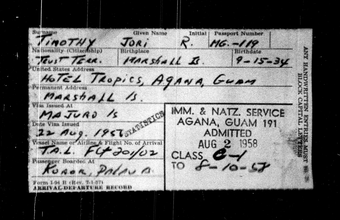 Surname Given Name Initial Passport Number
TIMOTHY JORI R. MG.-119
Nationality (Citizenship) Birthplace Birthdate
TRUST TERR. MARSHALL IS. 9-15-34
United States Address
HOTEL TROPICS, AGANA, GUAM
Permanent Address
MARSHALL IS
Visa Issued At
MAJURO IS
Date Visa Issued
22 AUG. 1956
STATISTICS
Vessel Name or Airline & Flight No. of Arrival
TAL FLT
Passenger Boarded At
KOROR, PALAU IS
Form I-94 B (Rev. 7-1-57)
ARRIVAL-DEPARTURE RECORD
IMM. & NATZ. SERVICE
AGANA, GUAM 191
ADMITTED
AUG 2 1958
CLASS C-1
TO 8-10-58
ANY HANDWRITTEN ENTRIES MUST BE
BLOCK CAPITAL LETTERS